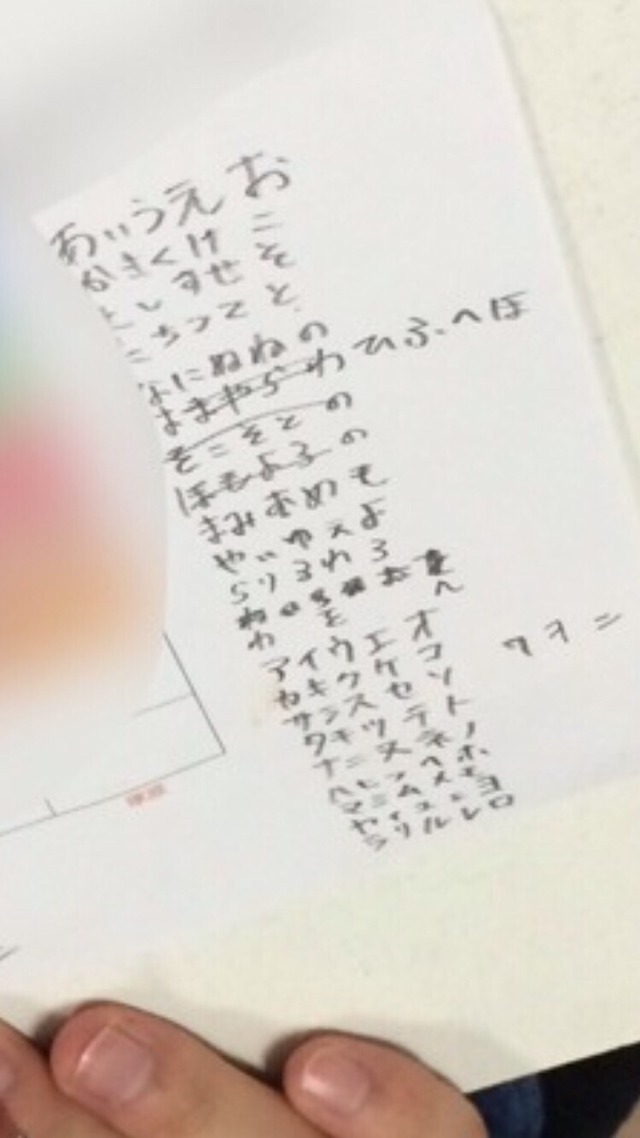 あいうえお
かきくけこ
しすせそ
ちつてと
なにぬねの
はまやらわひふへほ
そこそとの
ほもよろの
まみむめも
やいゆえよ
らりるれろ
わ
を
アイウエオ
カキクケコ
サシスセソ
タチツテト
ナニヌネノ
ハヒフヘホ
マミムメモ
ヤイユエヨ
ラリルレロ
ワヲン